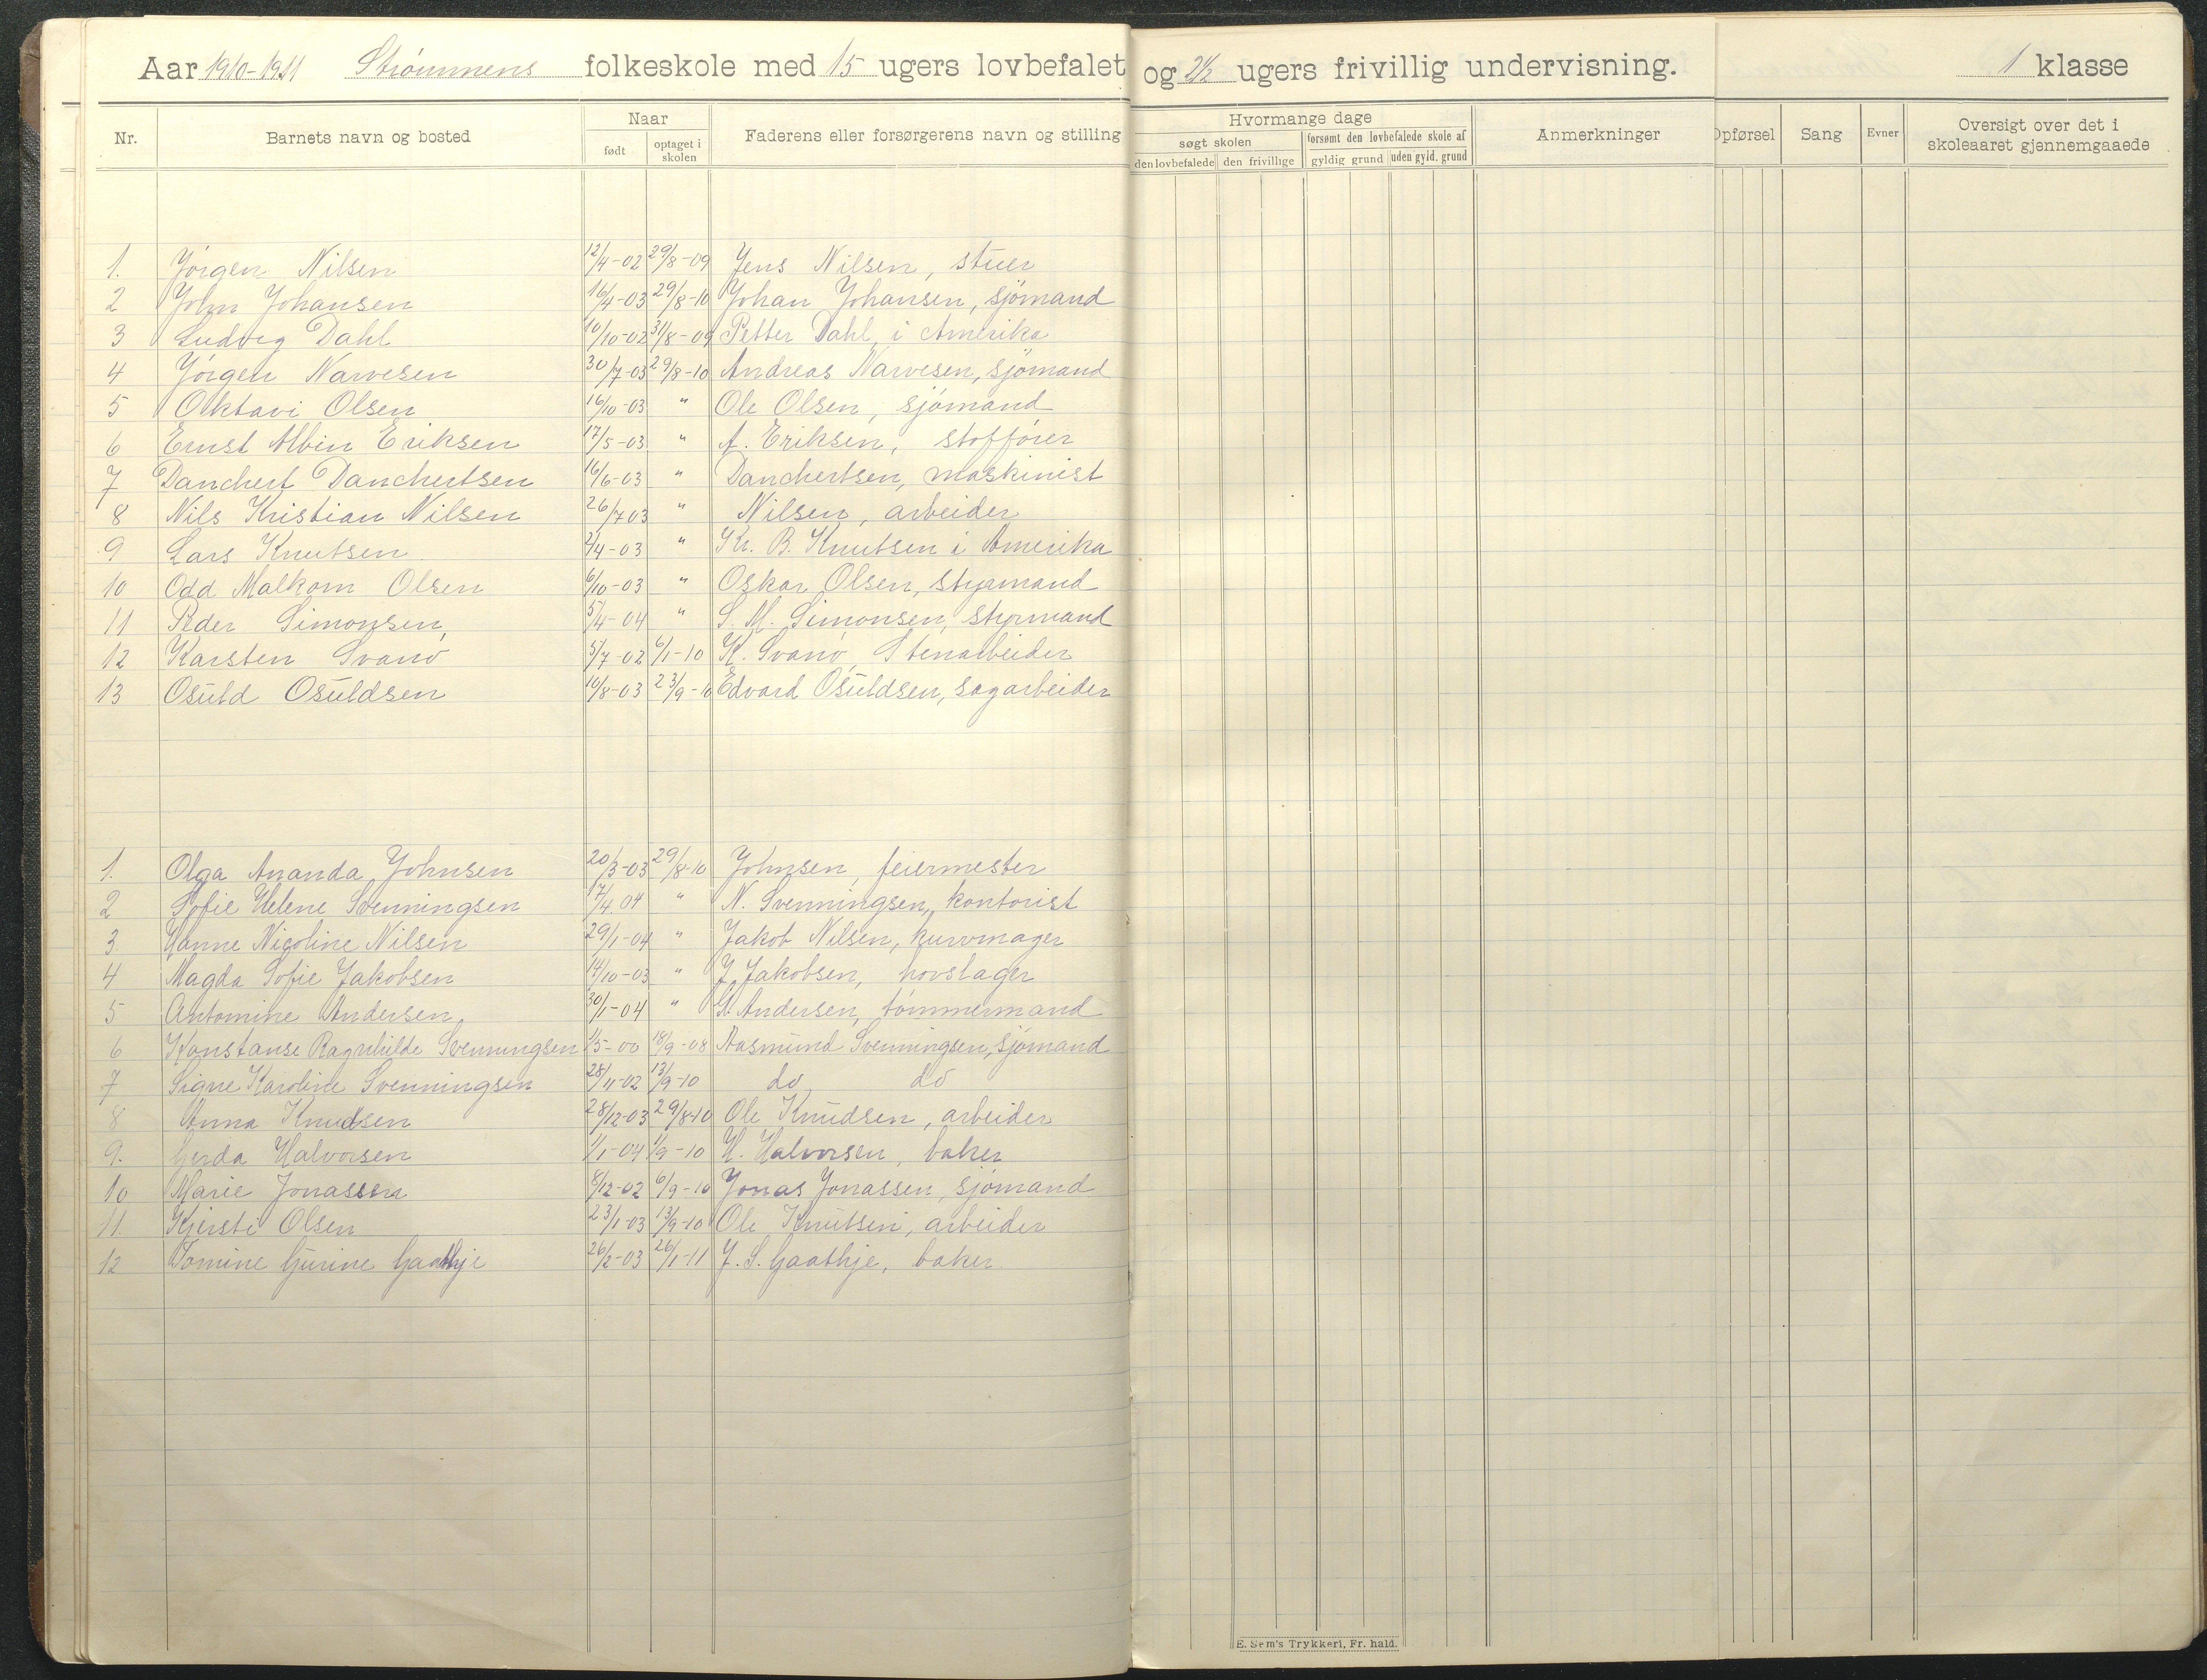 Aar 1910-1911 Strømmens folkeskole med 15 ugers lovbefalet og 2½ ugers frivillig undervisning. 1 klasse
Nr. Barnets navn og bosted Naar født optaget i skolen Faderens eller forsørgerens navn og stilling Hvormange dage søgt skolen den lovbefalede den frivillige forsømt den lovbefalede skole af gyldig grund uden gyld. grund Anmerkninger Opførsel Sang Evner Oversigt over det i skoleaaret gjennemgaaede
1. Jörgen Nilsen 12/4-02 29/8-09 Jens Nilsen, stuer
2 John Johansen 16/4-03 29/8-10 Johan Johansen, sjömand
3 Ludvig Dahl 10/10-02 31/8-09 Petter Dahl, i Amerika
4 Jörgen Narvesen 30/7-03 29/8-10 Andreas Narvesen, sjömand
5 Oktavi Olsen 16/10-03 " Ole Olsen, sjömand
6 Ernst Albin Eriksen 17/5-03 " A. Eriksen,
7 Danchert Danchertsen 16/6-03 " Danchertsen, maskinist
8 Nils Kristian Nilsen 26/7 03 " Nilsen, arbeider
9 Lars Knutsen 2/4-03 " Kr. B. Knutsen i Amerika
10 Odd Malkom Olsen 6/10-03 " Oskar Olsen, styrmand
11 Peder Simonsen 5/4-04 " S. M. Simonsen, styrmand
12 Karsten Svanö 5/7-02 6/1-10 K. Svanö, Stenarbeider
13 Osuld Osuldsen 10/8-03 23/9-10 Edvard Osuldsen, sagarbeider
1. Olga Ananda Johnsen 20/3-03 29/8-10 Johnsen, feiermester
2 Sofie Helene Svenningsen 17/4 04 " N. Svenningsen, kontorist
3 Hanne Nicoline Nilsen 29/1-04 " Jakob Nilsen, kurvmager
4 Magda Sofie Jakobsen 14/10-03 " J. Jakobsen, hovslager
5 Antomine Andersen 30/1-04 " Andersen, tömmermand
6 Konstanse Ragnhilde Svenningsen 1/5-00 18/9-08 Aasmund Svenningsen, sjömand
7 Signe Karoline Svenningsen 28/11-02 13/9-10 do do
8 Anna Knudsen 28/12-03 29/8-10 Ole Knudsen, arbeider
9. Gerda Halvorsen 1/1-04 1/9-10 H. Halvorsen, baker
10 Marie Jonassen 8/12-02 6/9-10 Jonas Jonassen, sjömand
11. Kjersti Olsen 23/1-03 13/9-10 Ole Knutsen, arbeider
12 Tomine Gurine Gaathje 26/2-03 26/1-11 J. S. Gaathje, baker
E. Sem's Trykkeri, Fr. hald.